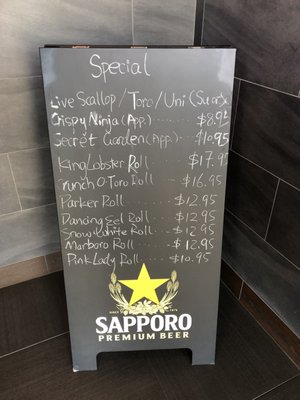 Special
Live Scallop / Toro / Uni
Crispy Ninja (App.) $8.95
Secret Garden (App.) $10.95
King Lobster Roll $17.95
Crunch O Toro Roll $16.95
Parker Roll $12.95
Dancing Eel Roll $12.95
Snow White Roll $12.95
Marboro Roll $12.95
Pink Lady Roll $10.95
SAPPORO
PREMIUM BEER